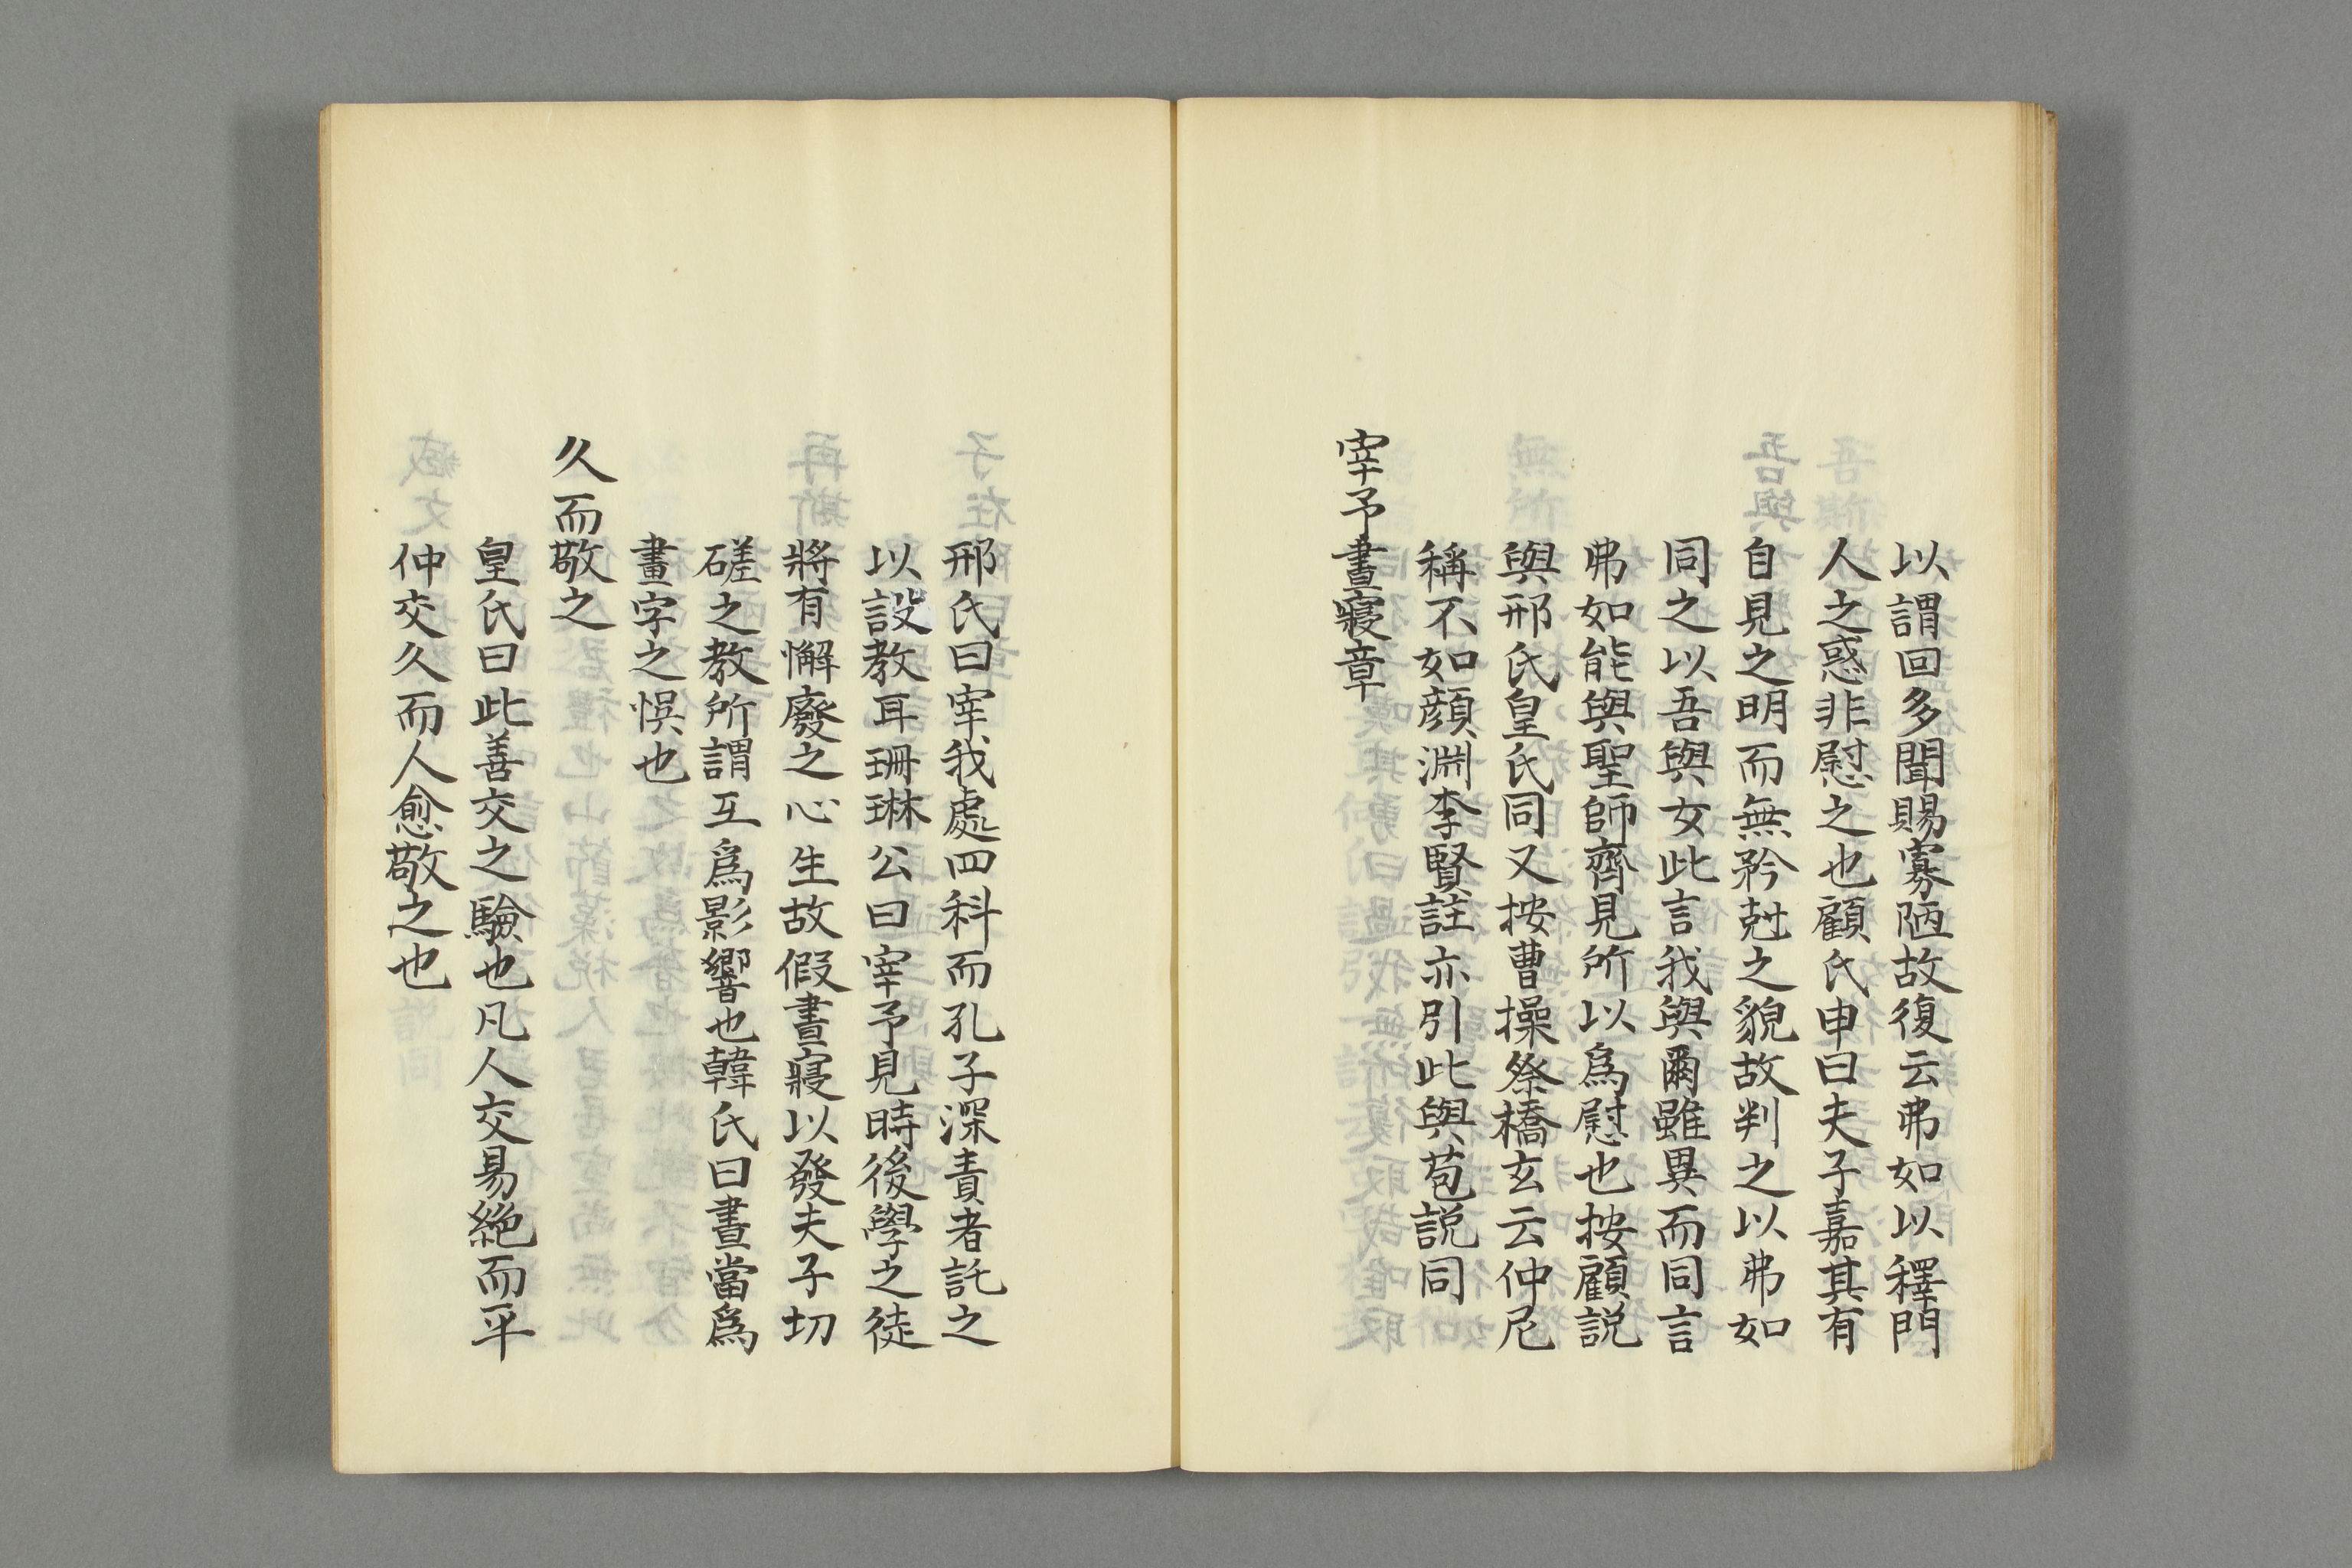 以謂回多聞賜寡陋故復云弗如以釋門
人之惑非慰之也顧氏申曰夫子嘉其有
自見之明而無矜尅之貌故判之以弗如
同之以吾與女此言我與爾雖異而同言
弗如能與聖師齊見所以爲慰也按顧説
與邢氏皇氏同又按曹操祭橋玄云仲尼
稱不如顔淵李賢註亦引此與苞説同
宰予晝寢章
邢氏曰宰我處四科而孔子深責者託之
以設教耳珊琳公曰宰予見時後學之徒
將有懈廢之心生故假晝寢以發夫子切
磋之教所謂互爲影響也韓氏曰晝當爲
畫字之悮也
久而敬之
皇氏曰此善交之驗也凡人交易絶而平
仲交久而人愈敬之也